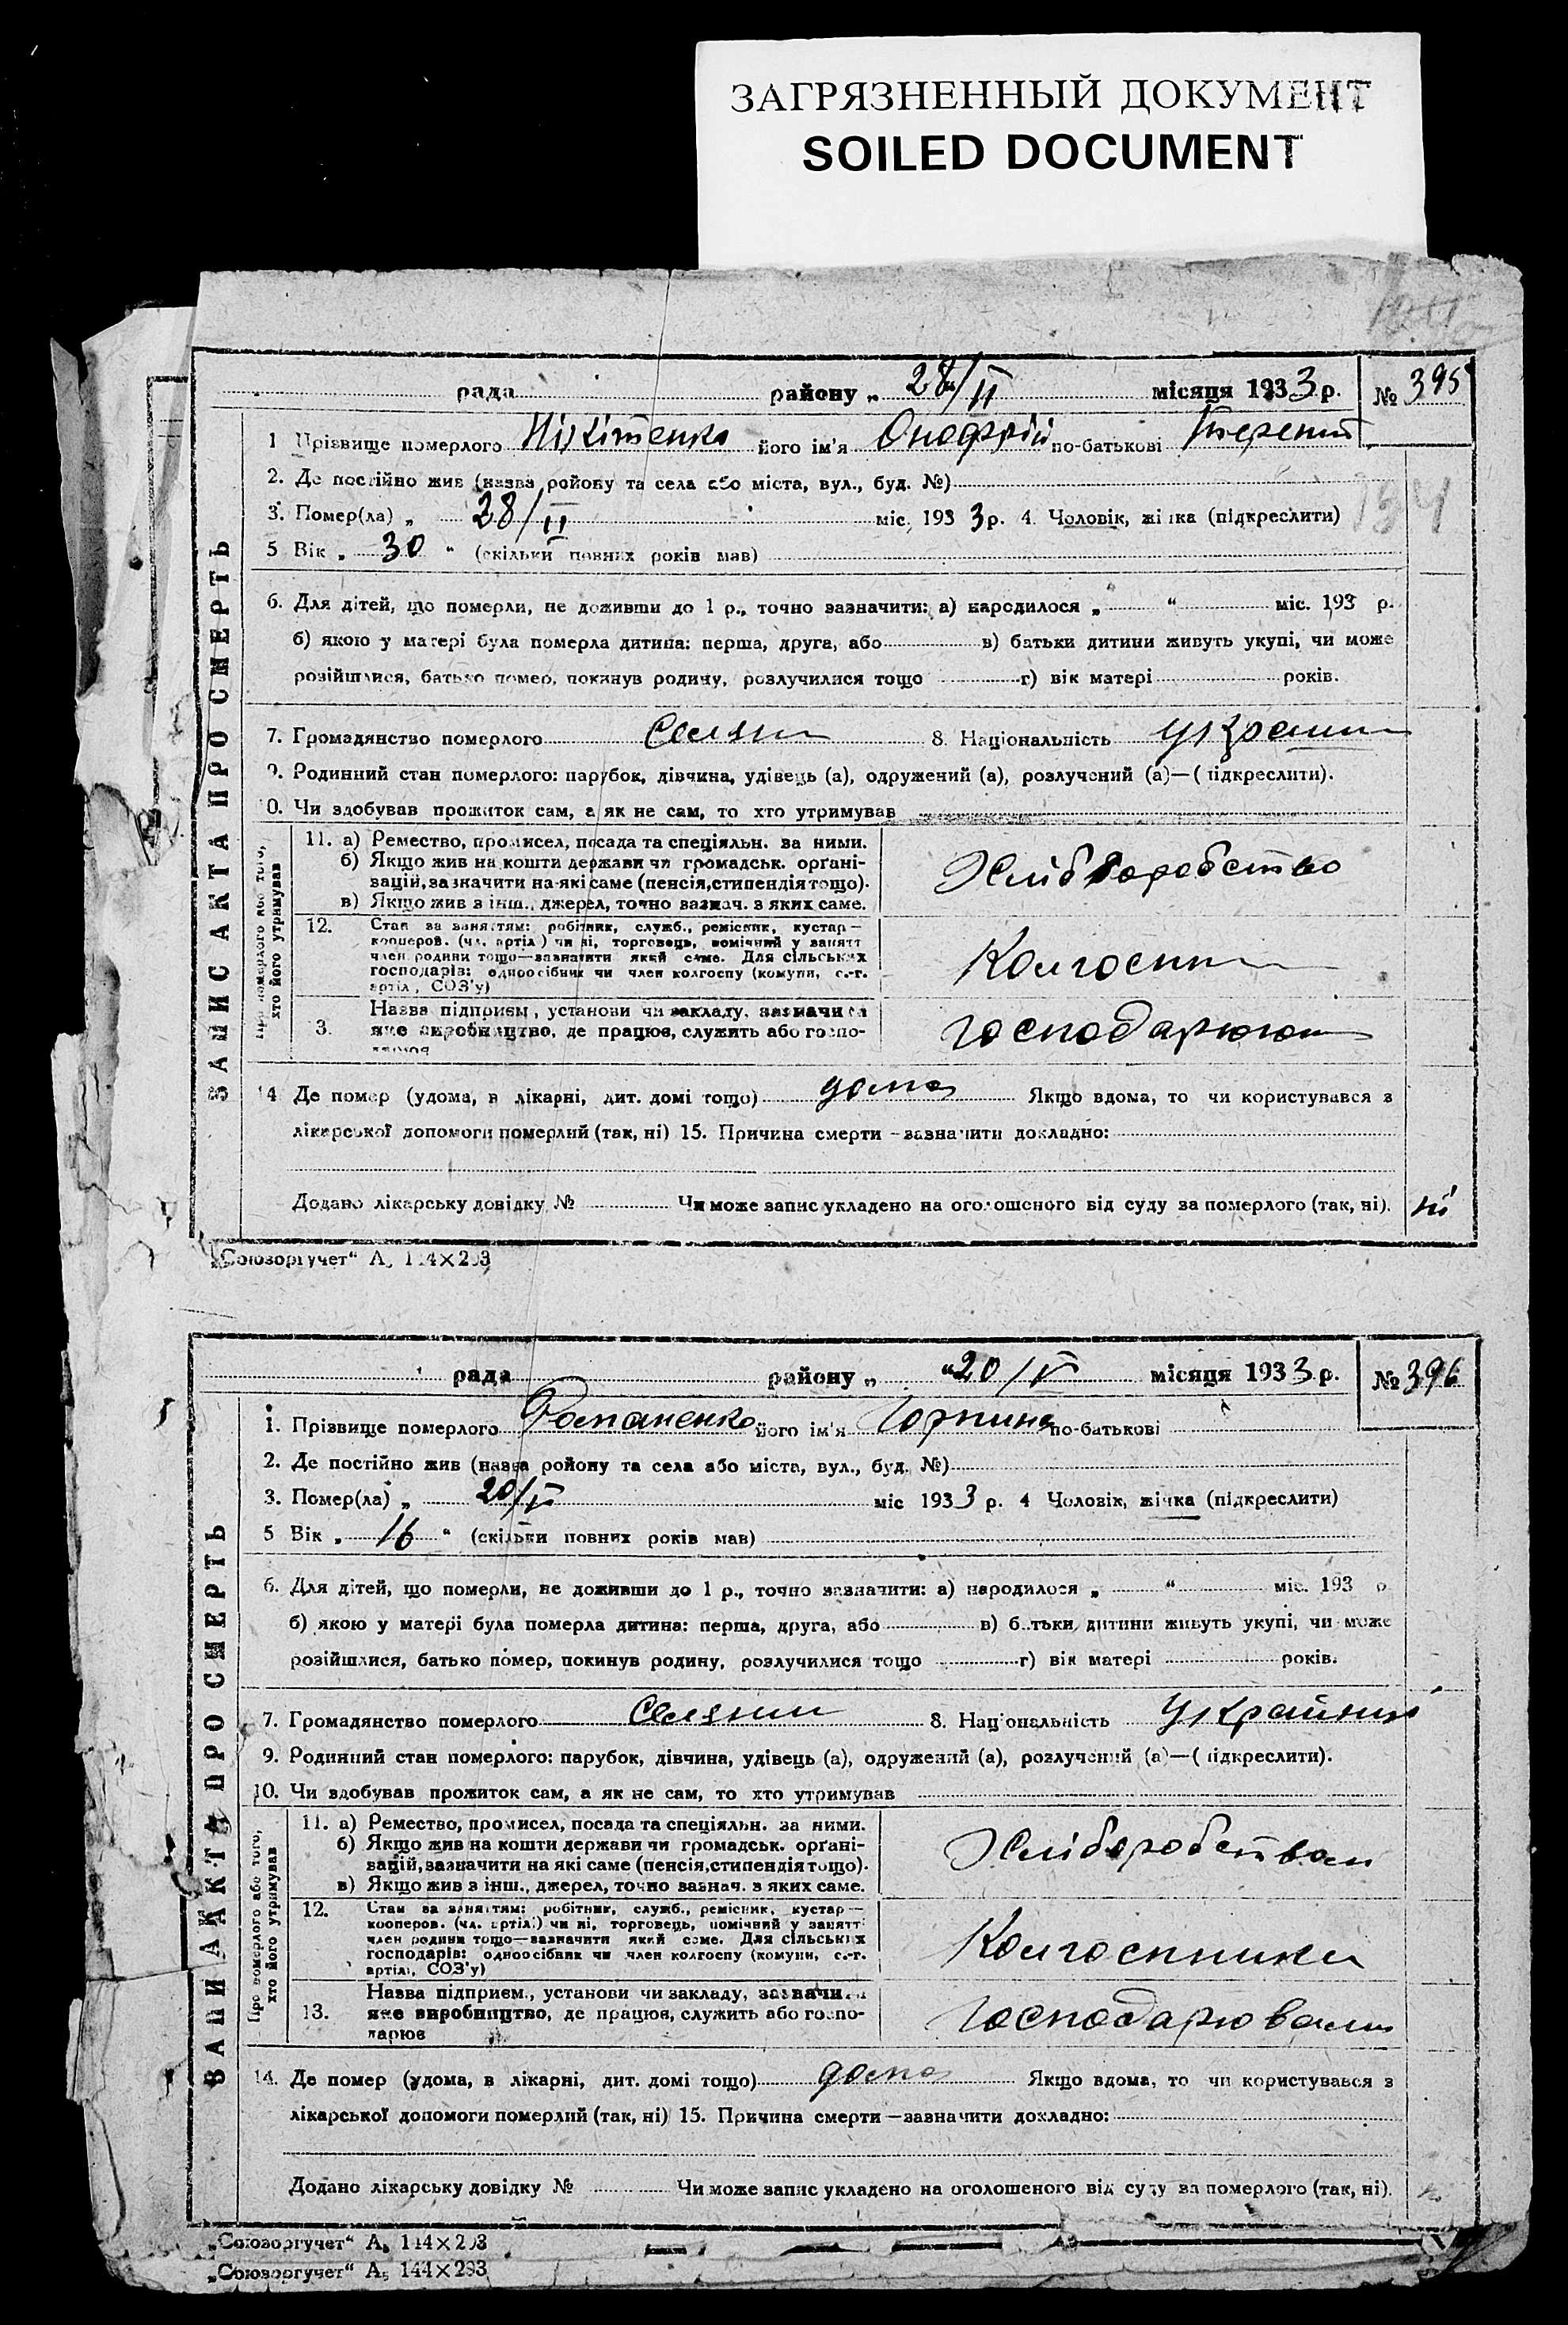 ЗАГРЯЗНЕННЫЙ ДОКУМЕНТ
SOILED DOCUMENT
рада району „ 28/II місяця 1933 р. № 395
1 Прізвище померлого Нікітенко його ім'я Онофрій по-батькові Терент
2. Де постійно жив (назва ройону та села або міста, вул., буд. №)
3. Помер(ла) „ 28/II міс. 193 3 р. 4. Чоловік, жінка (підкреслити)
134
5 Вік „ 30 “ (скільки повних років мав)
6. Для дітей, що померли, не доживши до 1 р., точно зазначити: а) народилося „ “ міс. 193 р.
б) якою у матері була померла дитина: перша, друга, або в) батьки дитини живуть укупі, чи може
розійшлися, батько помер, покинув родину, розлучилися тощо г) вік матері років.
7. Громадянство померлого Селян 8. Національність Украин
9. Родинний стан померлого: парубок, дівчина, удівець (а), одружений (а), розлучений (а)—(підкреслити).
10. Чи здобував прожиток сам, а як не сам, то хто утримував
ЗАПИС АКТА ПРО СМЕРТЬ
Про померлого або того,
хто його утримував
11. а) Ремество, промисел, посада та спеціяльн. за ними.
б) Якщо жив на кошти держави чи громадськ. орґані-
зацій, зазначити на які саме (пенсія, стипендія тощо).
в) Якщо жив з інш., джерел, точно зазнач. з яких саме.
Хліборобство
12. Стан за заняттям: робітник, служб., ремісник, кустар—
кооперов. (чл. артіл.) чи ні, торговець, помічний у занятт
член родини тощо—зазначити який саме. Для сільських
господарів: одноосібник чи член колгоспу (комуни, с.-г.
артіл., СОЗ'у)
Колгоспн
3. Назва підприєм., установи чи закладу, зазначи
яке виробництво, де працює, служить або госпо-
Господарюют
14 Де помер (удома, в лікарні, дит. домі тощо) дома Якщо вдома, то чи користувався з
лікарської допомоги померлий (так, ні) 15. Причина смерти - зазначити докладно:
Додано лікарську довідку № Чи може запис укладено на оголошеного від суду за померлого (так, ні). ні
„Союзоргучет“ А5 144×203
рада району „ “20/V місяця 1933 р. № 396
1. Прізвище померлого Романенко його ім'я Горпина по-батькові
2. Де постійно жив (назва ройону та села або міста, вул., буд. №)
3. Помер(ла) „ 20/V міс 193 3 р. 4 Чоловік, жінка (підкреслити)
5 Вік „ 16 “ (скільки повних років мав)
6. Для дітей, що померли, не доживши до 1 р., точно зазначити: а) народилося „ “ міс. 193 р
б) якою у матері була померла дитина: перша, друга, або в) батьки дитини живуть укупі, чи може
розійшлися, батько помер, покинув родину, розлучилися тощо г) вік матері років.
7. Громадянство померлого Селянин 8. Національність Україниц
9. Родинний стан померлого: парубок, дівчина, удівець (а), одружений (а), розлучений (а)—(підкреслити).
10. Чи здобував прожиток сам, а як не сам, то хто утримував
ЗАПИ АКТА ПРО СМЕРТЬ
Про померлого або того,
хто його утримував
11. а) Ремество, промисел, посада та спеціяльн. за ними.
б) Якщо жив на кошти держави чи громадськ. орґані-
зацій, зазначити на які саме (пенсія, стипендія тощо).
в) Якщо жив з інш., джерел, точно зазнач. з яких саме.
Хліборобством
12. Стан за заняттям: робітник, служб., ремісник, кустар—
кооперов. (чл. артіл.) чи ні, торговець, помічний у занятт
член родини тощо—зазначити який саме. Для сільських
господарів: одноосібник чи член колгоспу (комуни, с.-г.
артіл., СОЗ'у)
Колгоспники
13. Назва підприєм., установи чи закладу, зазначи
яке виробництво, де працює, служить або госпо-
дарює
Господарювали
14. Де помер (удома, в лікарні, дит. домі тощо) дома Якщо вдома, то чи користувався з
лікарської допомоги померлий (так, ні) 15. Причина смерти —зазначити докладно:
Додано лікарську довідку № Чи може запис укладено на оголошеного від суду за померлого (так, ні).
„Союзоргучет“ А5 144×203
„Союзоргучет“ А5 144×293